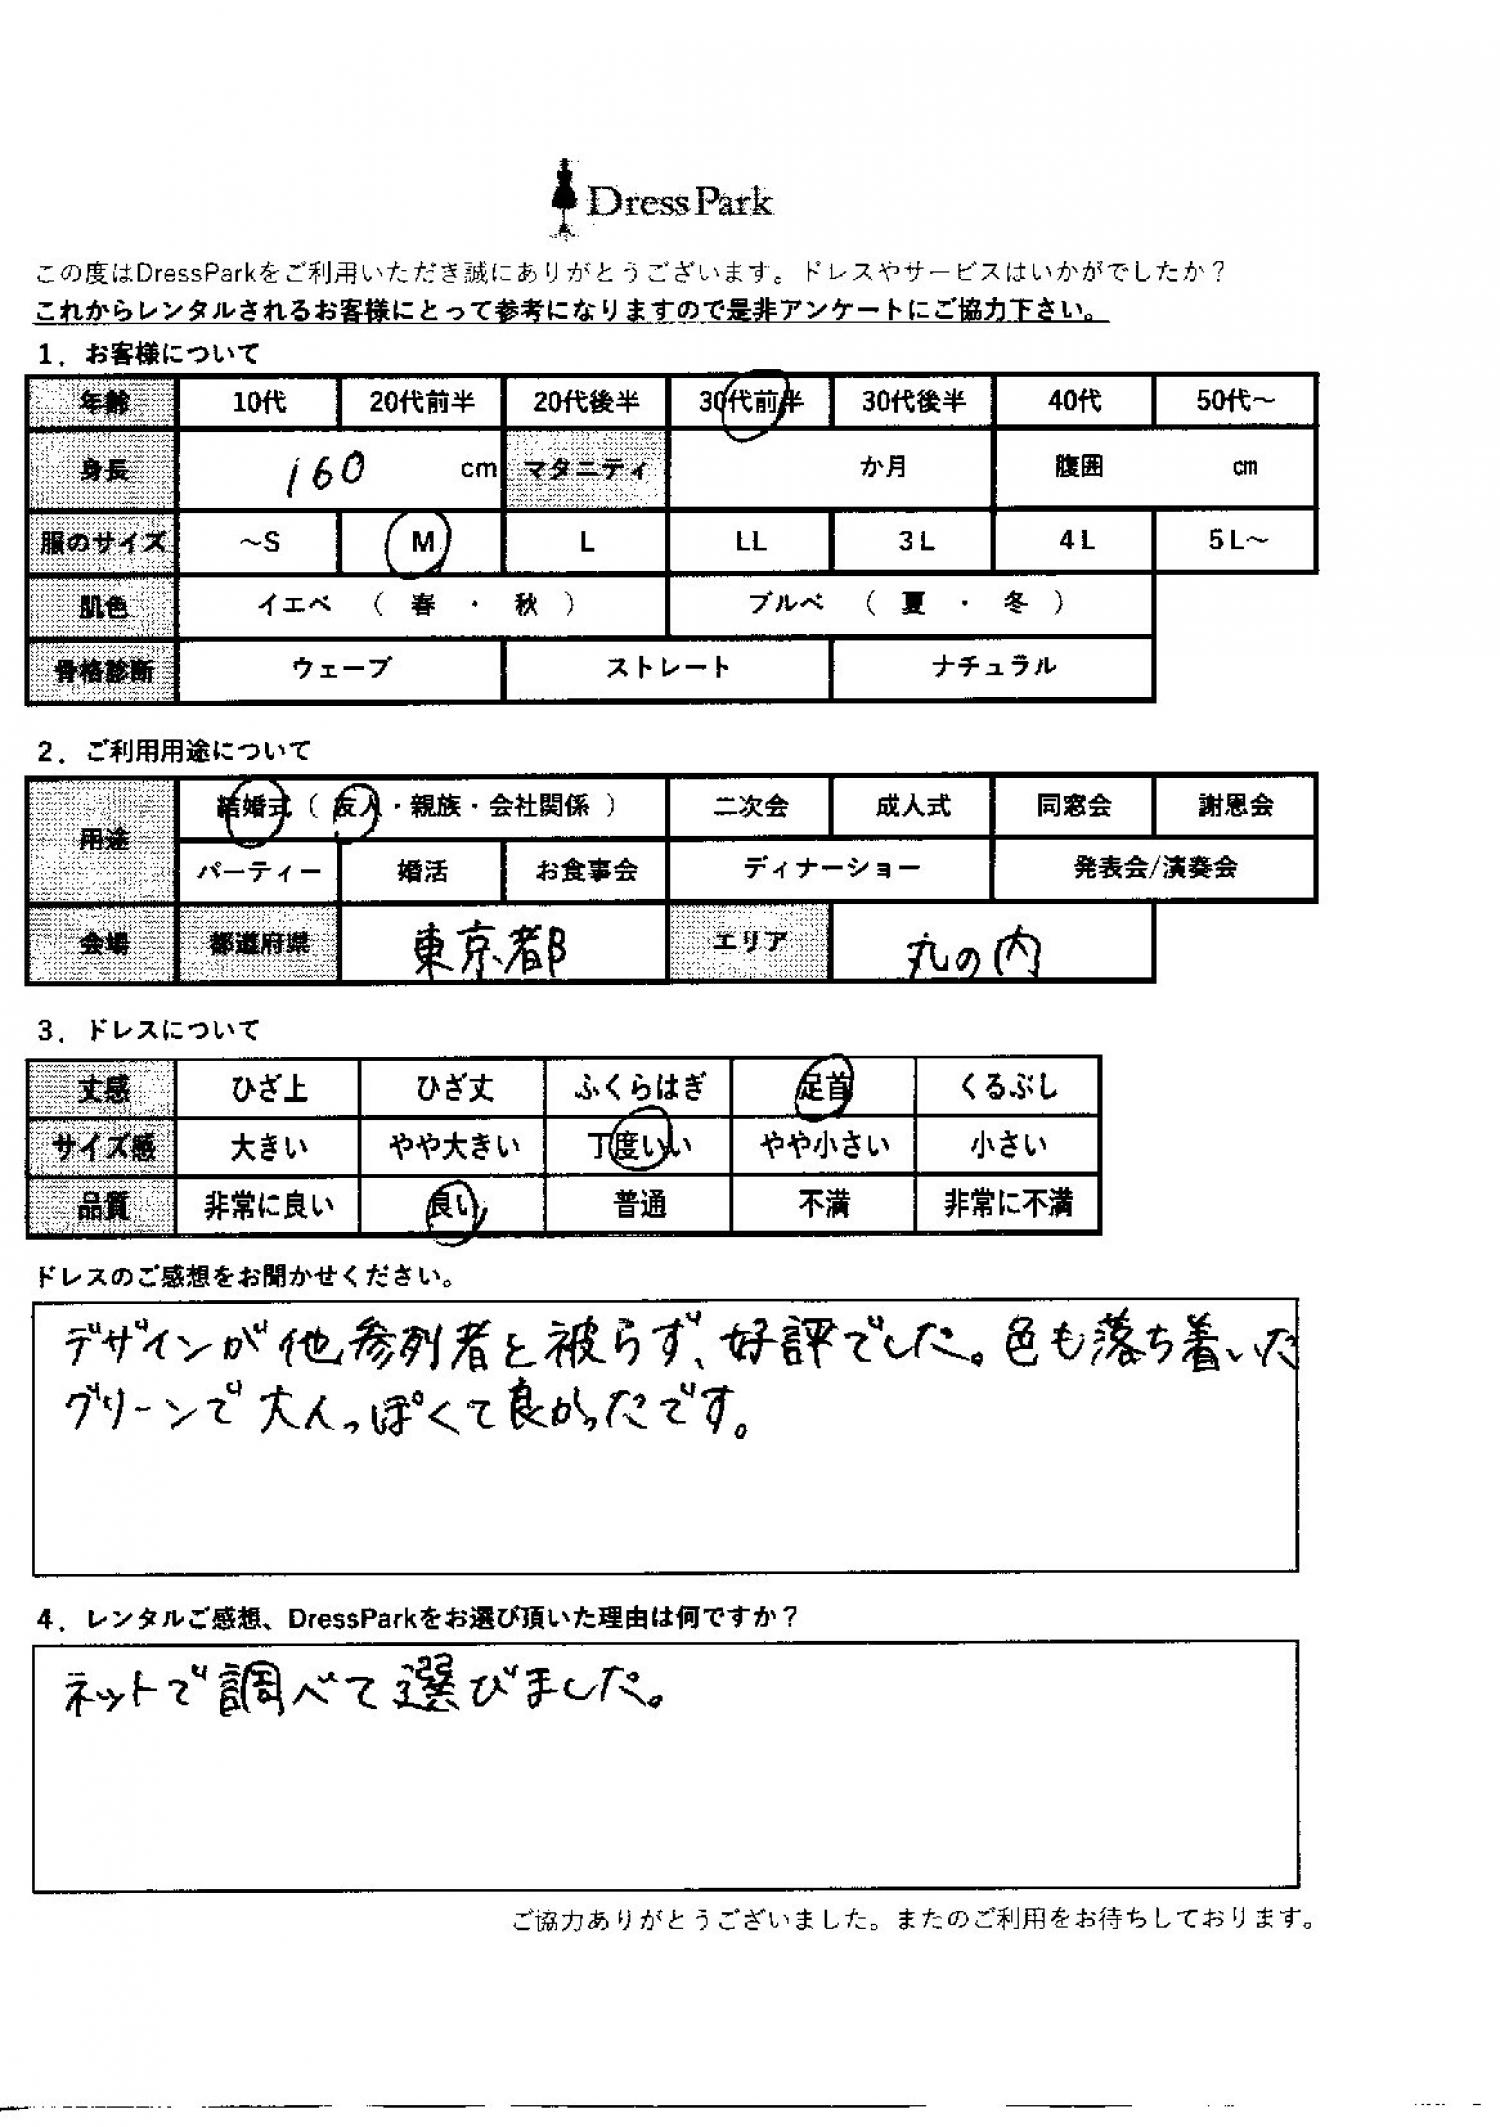 DressPark
この度はDressParkをご利用いただき誠にありがとうございます。ドレスやサービスはいかがでしたか？
これからレンタルされるお客様にとって参考になりますので是非アンケートにご協力下さい。
1．お客様について
年齢 10代 20代前半 20代後半 30代前半 30代後半 40代 50代～
身長 160 cm マタニティ か月 腹囲 ㎝
服のサイズ ～S M L LL 3L 4L 5L～
肌色 イエベ （ 春 ・ 秋 ） ブルべ （ 夏 ・ 冬 ）
骨格診断 ウェーブ ストレート ナチュラル
2．ご利用用途について
用途 結婚式（ 友人・親族・会社関係 ） 二次会 成人式 同窓会 謝恩会
パーティー 婚活 お食事会 ディナーショー 発表会/演奏会
会場 都道府県 東京都 エリア 丸の内
3．ドレスについて
丈感 ひざ上 ひざ丈 ふくらはぎ 足首 くるぶし
サイズ感 大きい やや大きい 丁度いい やや小さい 小さい
品質 非常に良い 良い 普通 不満 非常に不満
ドレスのご感想をお聞かせください。
デザインが他参列者と被らず、好評でした。色も落ち着いた
グリーンで大人っぽくて良かったです。
4．レンタルご感想、DressParkをお選び頂いた理由は何ですか？
ネットで調べて選びました。
ご協力ありがとうございました。またのご利用をお待ちしております。